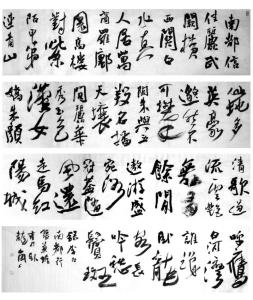 南都信
佳麗武
闕横
西關白
水真
人居萬
商羅鄽
闤高樓
對紫
陌甲第
連青山
此地多
英豪
邈然不
可攀
陶朱與五
羖名播
天壤
間麗華
秀玉色
漢女
嬌朱顏
清歌遏
流雲艷
舞有
餘閒
遨游盛
宛洛
冠蓋隨
風還
走馬紅
陽城
呼鷹
白河灣
誰識
臥龍
客長
吟愁
鬢斑
南都行